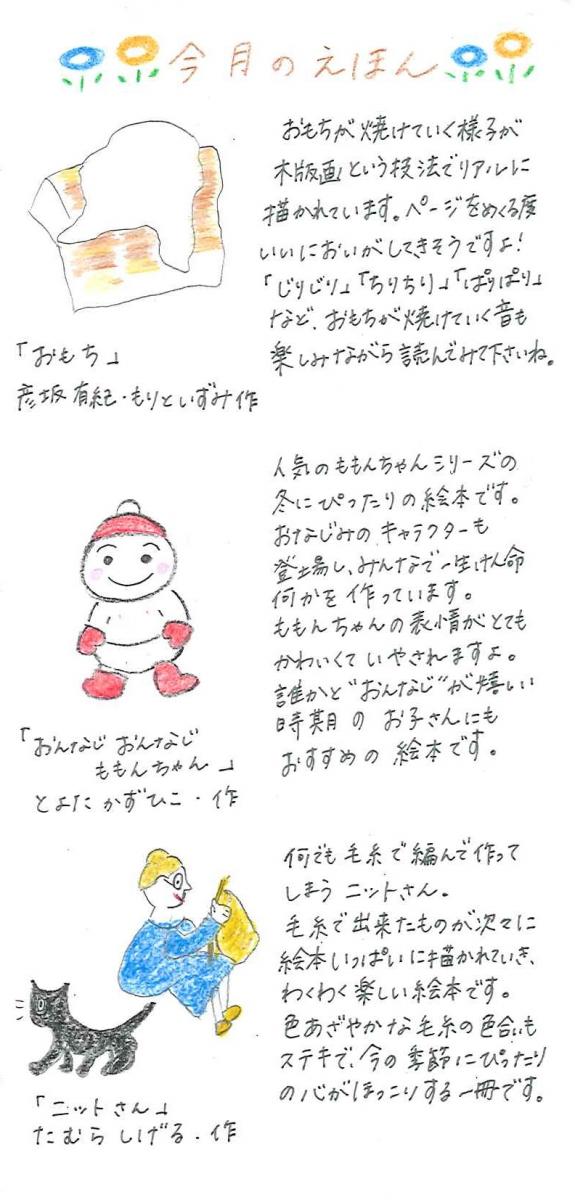 今月のえほん
おもちが焼けていく様子が
木版画という技法でリアルに
描かれています。ページをめくる度
いいにおいがしてきそうですよ!
「じりじり」「ちりちり」「ぱりぱり」
など、おもちが焼けていく音も
楽しみながら読んでみて下さいね。
「おもち」
彦坂有紀・もりといずみ作
人気のももんちゃんシリーズの
冬にぴったりの絵本です。
おなじみのキャラクターも
登場し、みんなで一生けん命
何かを作っています。
ももんちゃんの表情がとても
かわいくていやされますよ。
誰かと"おんなじ"が嬉しい
時期のお子さんにも
おすすめの絵本です。
「おんなじおんなじ
ももんちゃん」
とよたかずひこ・作
何でも毛糸で編んで作って
しまうニットさん。
毛糸で出来たものが次々に
絵本いっぱいに描かれていき、
わくわく楽しい絵本です。
色あざやかな毛糸の色合いも
ステキで、今の季節にぴったり
の心がほっこりする一冊です。
「ニットさん」
たむらしげる・作